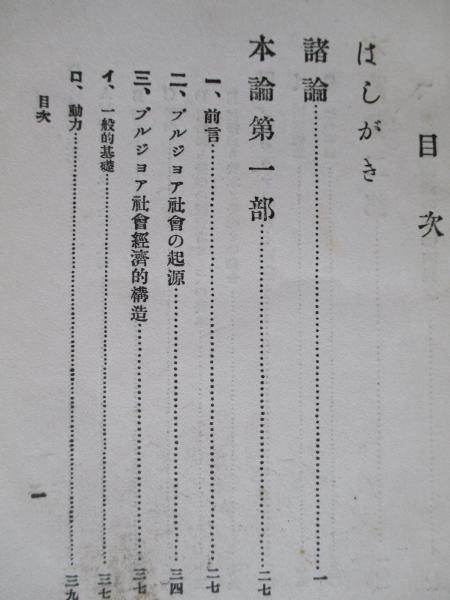 目次
はしがき
諸論……一
本論第一部……二七
一、前言……二七
二、ブルジョア社會の起源……三四
三、ブルジョア社會經濟的構造……三七
イ、一般的基礎……三七
ロ、動力……三九
目次 一